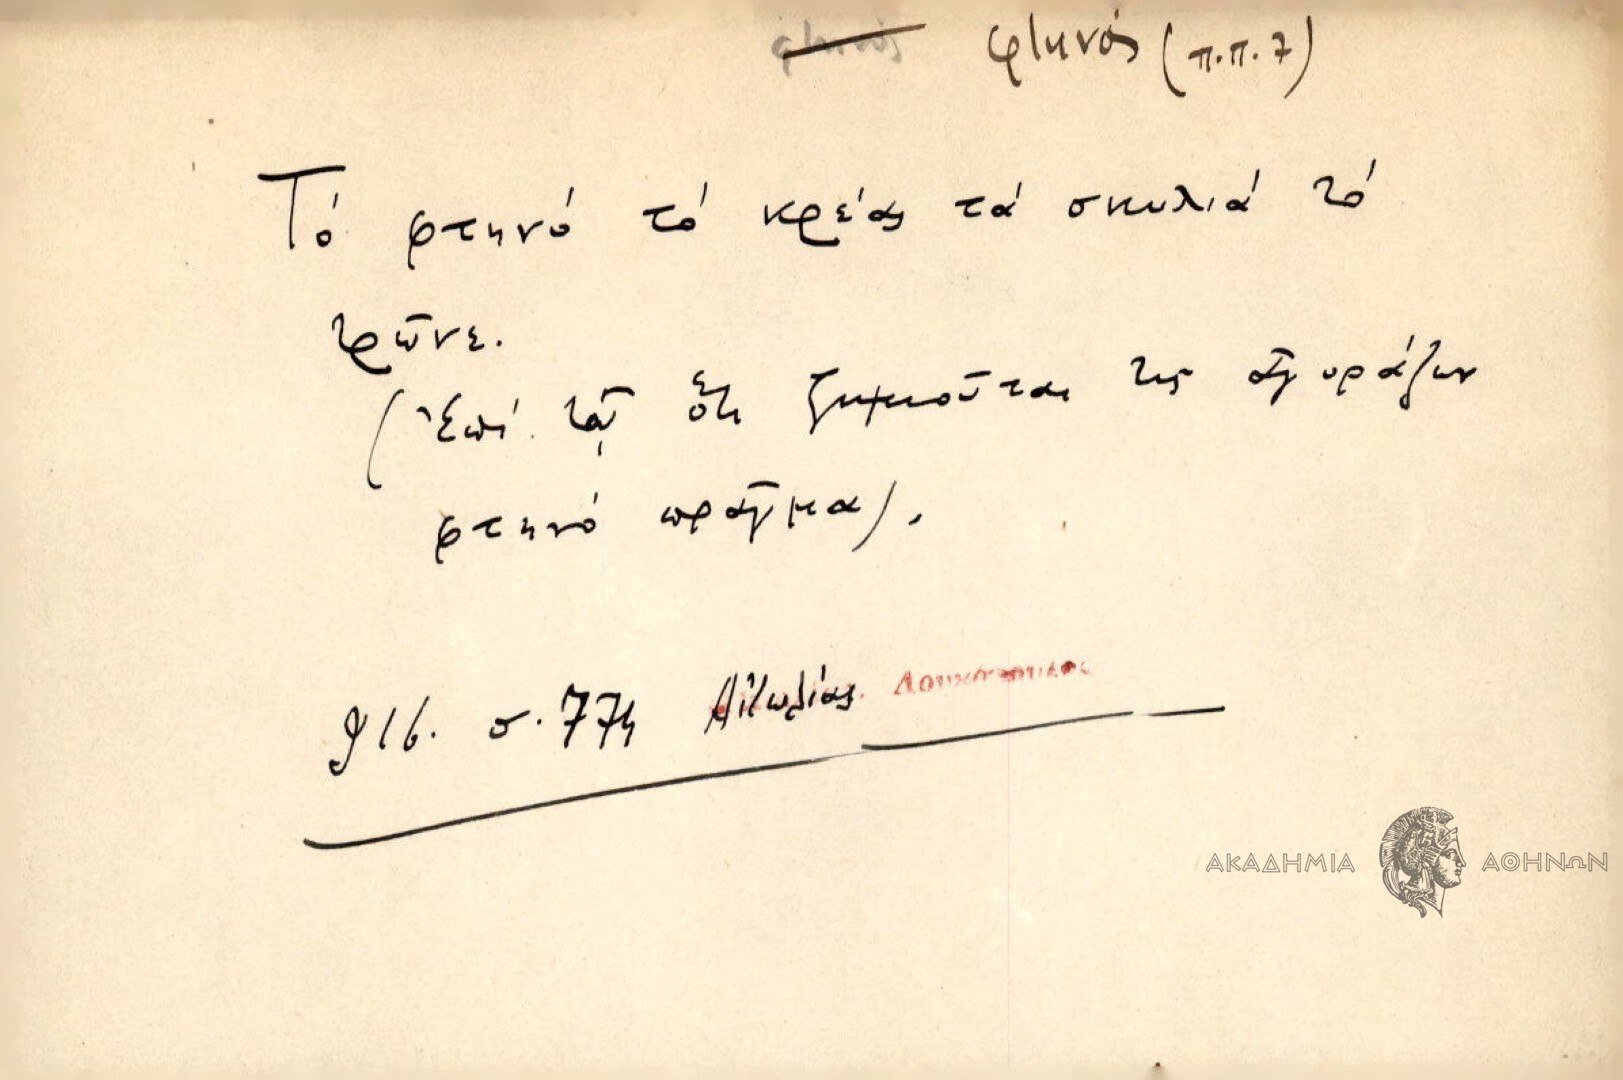 φτηνός (π.π. 7)
Τό φτηνό τό κρέας τά σκυλιά τό
τρῶνε.
(Ἐπί τοῦ ὅτι ζημιοῦται τις ἀγοράζων
φτηνό πρᾶγμα).
916. σ. 774 Αἰτωλίας Λουκόπουλος
ΑΚΑΔΗΜΙΑ ΑΘΗΝΩΝ